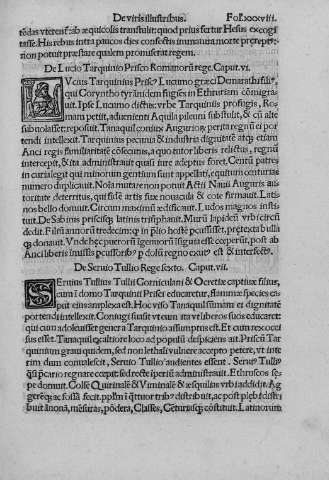 De viris illustribus. Fol.xxxviii.
tẽdas vterent᷒ ab æquicolis transtulit: quod prius fertur Hesus excogi
tasse. His rebus intra paucos dies confectis immatura morte præreptº
non potuit præstare qualem promiserat regem.
De Lucio Tarquinio Prisco Romanorũ rege. Caput.vi.
LVcius Tarquinius Priscº Lucumo græci Demarathi filiº,
qui Coryntho tyrãnidem fugiẽs in Ethruriam cõmigra
uit. Ipse Lucumo dictus: vrbe Tarquiniis profugis, Ro
mam petiit, aduenienti Aquila pileum substulit, & cũ alte
subuolasset: reposuit. Tanaquil coniux Auguriorũ perita regnũ ei por
tendi intellexit. Tarquinius pecunia & industria dignitatẽ atq; etiam
Anci regis familiaritatẽ cõsecutus, a quo tutor liberis relictus, regnũ
intercepit, & ita administrauit quasi iure adeptus foret. Centũ patres
in curia legit qui minorum gentium sunt appellati, equitum centurias
numero duplicauit. Nola mutare non potuit Actii Nauii Auguris au
toritate deterritus, quifidẽ artis suæ nouacula & cote firmauit. Lati
nos bello domuit. Circum maximũ ædificauit. Ludos magnos insti
tuit. De Sabinis priscisq; latinis triũphauit. Murũ lapideũ vrbi circũ
dedit. Filiũ annorũ tredecim: ꝙ in p̃lio hostẽ pcussisset, prętexta bulla
q; donauit. Vnde hęc puerorũ igenuorũ ĩsignia esse cœperũt, post ab
Anci liberis
De Seruio Tullio Rege sexto. Caput.vii.
SErtius Tullius Tulli Corniculani & Ocretiæ captiuæ filius,
cum ĩ domo Tarquini Prisci educaretur, flãmæ species ca
put eius amplexa est. Hoc viso Tanaquil summã ei dignitatẽ
portendi intellexit. Coniugi suasit vt eum ita vt liberos suos educaret:
qui cum adoleuisset gener a Tarquinio assumptus est. Et cum rex occi
sus esset. Tanaquil ex altiore loco ad populũ despiciens ait. Priscũ Tar
quinium graui quidem, sed non lethali vulnere accepto petere, vt inte
rim dum conualescit, Seruio Tullio audientes essent. Seruiº Tulliº
q̃si p̃cario regnare cœpit: sed recte iperiũ administrauit. Ethruscos sę
pe domuit. Collẽ Quirinalẽ & Viminalẽ & æsquilias vrbi addidit. Ag
gerẽq; ac fossã fecit. pplm ĩ q̃tuor tribº distribuit, ac post plebi distri
buit ãnonã, mẽsuras, põdera, Classes, Cẽturiasq; cõstituit. Latinorum